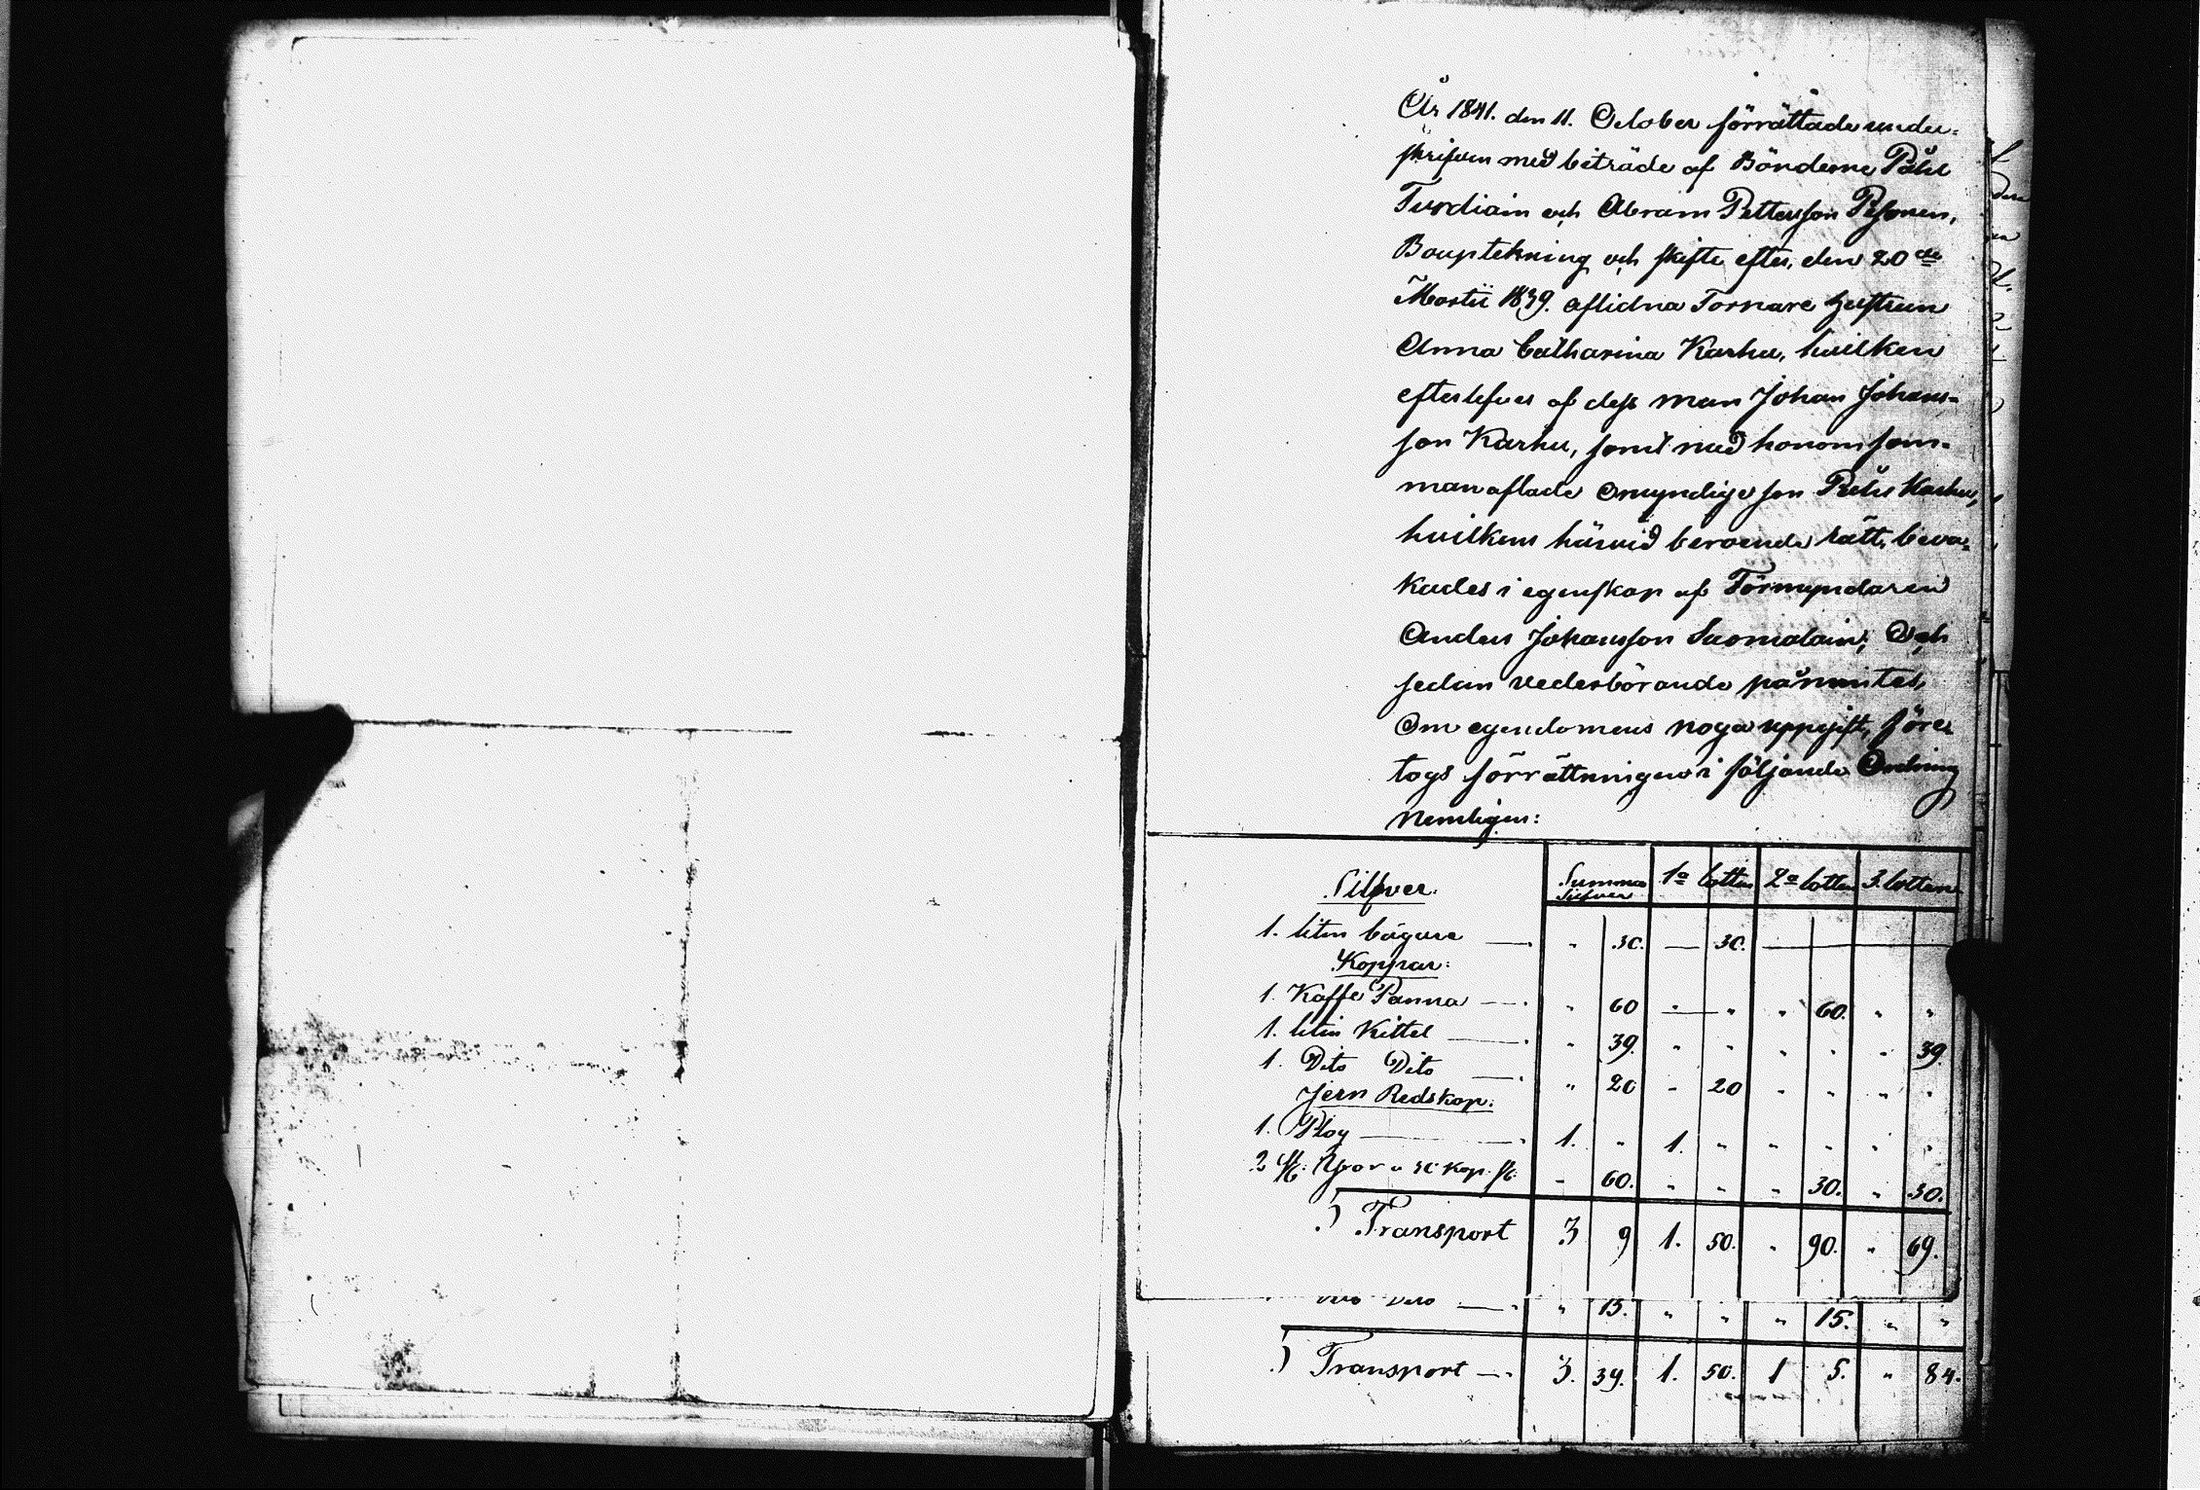 År 1841. den 11. October förrättade under-
skrifven med biträde af Bönderne Påhl
Turdiain och Abram Pettersson Pesonen,
Bouptekning och skifte efter, den 20de
Martii 1839. aflidna Tornare hustrun
Anna Catharina Karhu, hvilken
efterlefves af dess man Johan Johans-
son Karhu, samt med honom sam-
manaflade omyndige son Påhl Karhu,
hvilkens härvid beroende rätt, beva-
kades i egenskap af Förmyndaren
Anders Johansson Suomalain; Och
sedan vederbörande påmintes,
Om egendomens noga uppgift, före
togs förrättningen i följande Ordning
Nemligen:
Silfver. Summa Silfver 1a lotten 2a lotten 3. lotten
1. liten bägare — " 30. — 30. —
Koppar:
1. Kaffe Panna — " 60 — " " 60. " "
1. liten Kittel — " 39. " " " " " 39
1. Dito Dito — " 20 " 20 " " " "
Jern Redskap:
1. Plog — 1. " 1. " " " " "
2 st: a 30 kop. st. " 60. " " " 30. " 30.
Transport 3 9 1. 50. " 90. " 69.
Dito Dito — " 15. " " " 15. " "
Transport — 3. 39. 1. 50. 1 5. " 84.